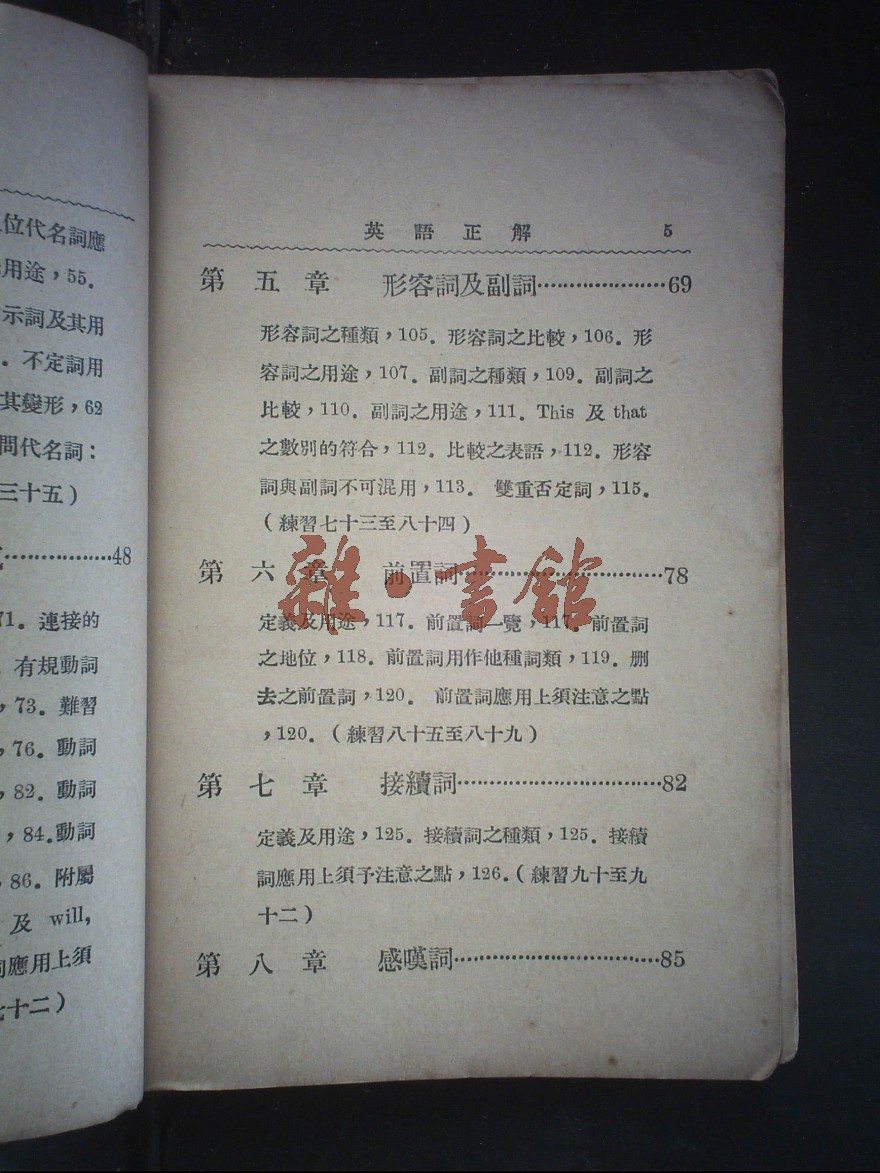 位代名詞應
用途，55．
示詞及其用
．不定詞用
其變形，62
問代名詞：
三十五）
………………48
71．連接的
有規動詞
，73．難習
，76．動詞
，82．動詞
，84．動詞
，86．附屬
及 will,
詞應用上須
七十二）
英語正解 5
第五章 形容詞及副詞…………………69
形容詞之種類，105．形容詞之比較，106．形
容詞之用途，107．副詞之種類，109．副詞之
比較，110．副詞之用途，111．This 及 that
之數別的符合，112．比較之表語，112．形容
詞與副詞不可混用，113． 雙重否定詞，115．
（練習七十三至八十四）
第六章 前置詞…………………………78
定義及用途，117．前置詞一覽，117．前置詞
之地位，118．前置詞用作他種詞類，119．刪
去之前置詞，120． 前置詞應用上須注意之點
，120．（練習八十五至八十九）
第七章 接續詞…………………………82
定義及用途，125．接續詞之種類，125．接續
詞應用上須予注意之點，126．（練習九十至九
十二）
第八章 感嘆詞…………………………85
雜·書館